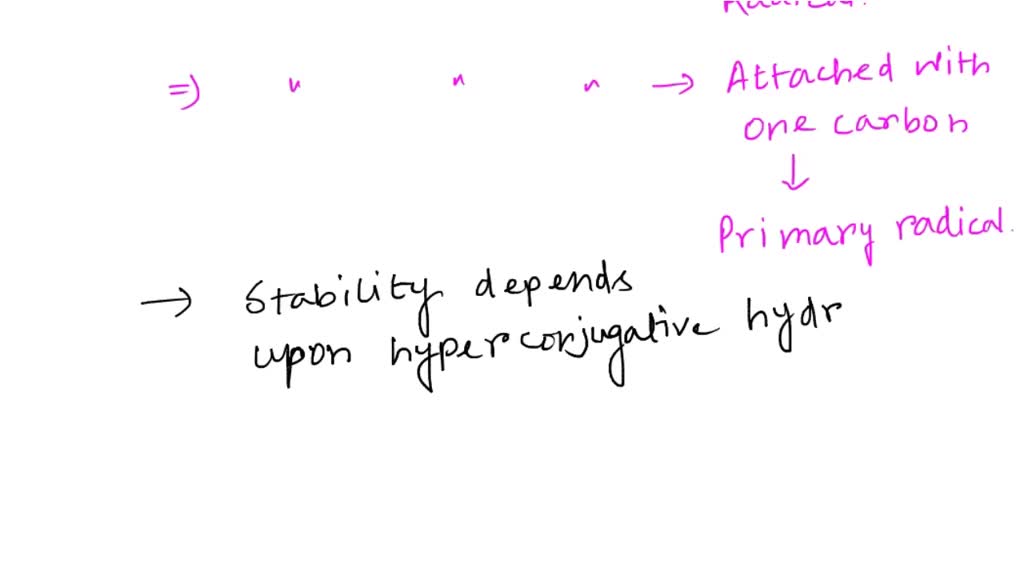 =) " " " → Attached with
one carbon
↓
Primary radical.
→ Stability depends
upon hyperconjugative hydr